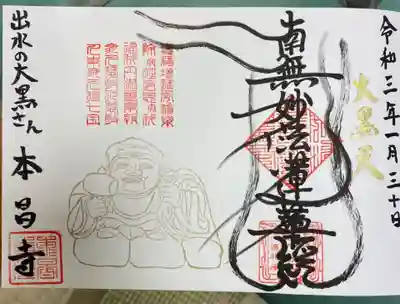 令和三年一月三十日
大黒天
南無妙法蓮華経
出水の大黒さん
本昌寺